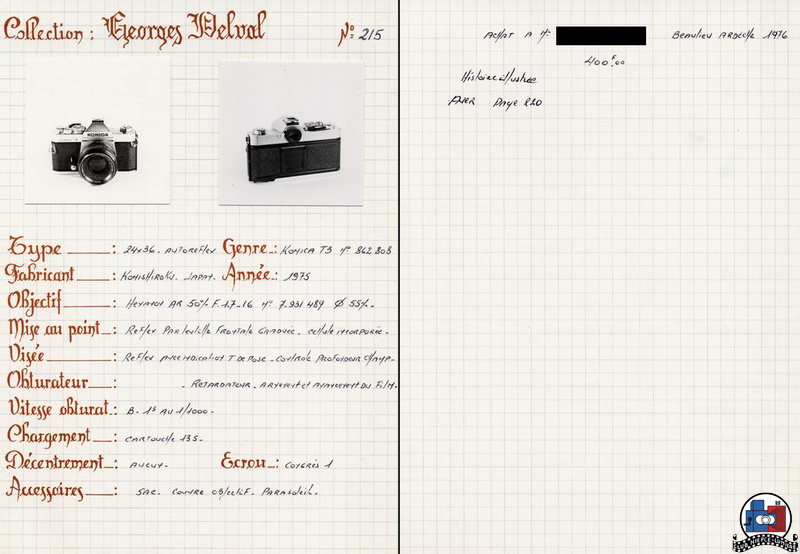 Collection : Georges Delval Nº 215
KONICA
Type : 24x36. AUTOREFLEX Genre : KONICA T3 Nº 862.808
Fabricant : KONISHIROKU. JAPAN. Année : 1975
Objectif : HEXANON AR 50% F.1.7-16 Nº 7.931489 Ø 55%.
Mise au point : REFLEX PAR LENTILLE FRONTALE GRADUÉE. CELLULE INCORPORÉE.
Visée : REFLEX AVEC INDICATION T DE POSE. CONTROLE PROFONDEUR CHAMP.
Obturateur : . RETARDATEUR. ARMEMENT et AVANCEMENT DU FILM.
Vitesse obturat. : B. 1S AU 1/1000.
Chargement : CARTOUCHE 135.
Décentrement : AUCUN. Ecrou : CONGRÈS 1
Accessoires : SAC. COUVRE OBJECTIF. PARASOLEIL.
ACHAT A Mr BEAULIEU ARDECHE 1976
400F.00
Histoire illustrée
PAGE 220